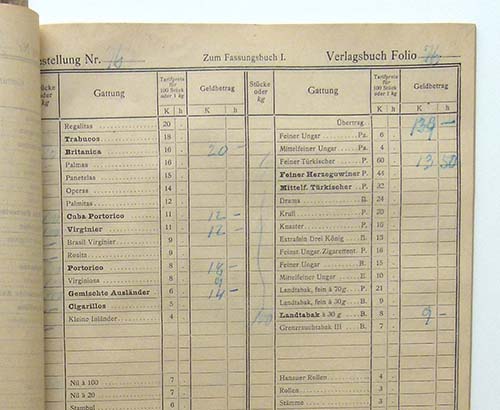 stellung Nr. 76 Zum Fassungsbuch I. Verlagsbuch Folio 76
Stücke oder kg Gattung Tarifpreis für 100 Stück oder 1 kg Geldbetrag Stücke oder kg Gattung Tarifpreis für 100 Stück oder 1 kg Geldbetrag
K h K h K h K h
Regalitas 20 Übertrag
Trabucos 18 Feiner Ungar Pa. 6
Britanica 16 20 – Mittelfeiner Ungar Pa. 4
Palmas 16 Feiner Türkischer P. 60 13 50
Panetelas 15 Feiner Herzegowiner P. 44
Operas 14 Mittelf. Türkischer P. 32
Palmitas 12 Drama B. 24
Cuba Portorico 11 12 – Krull P. 20
Virginier 11 12 – Knaster P. 10
Brasil Virginier 9 Extrafein Drei König B. 13
Rosita 9 Feinst Ungar. Zigarettent. P. 16
Portorico 8 Feiner Ungar B. 15
Virginiosa 8 9 Mittelfeiner Ungar E. 10
Gemischte Ausländer 6 14 – Landtabak, fein à 70g P. 21
Cigarillos 5 Landtabak, fein à 30g B. 9
Kleine Inländer 4 Landtabak à 30 g B. 8 9 –
Grenzersuchtabak III B. 7
Hanauer Rollen 4
Nil à 100 7 Rollen 3
Nil à 20 7 Stämme 3
Stambul 6